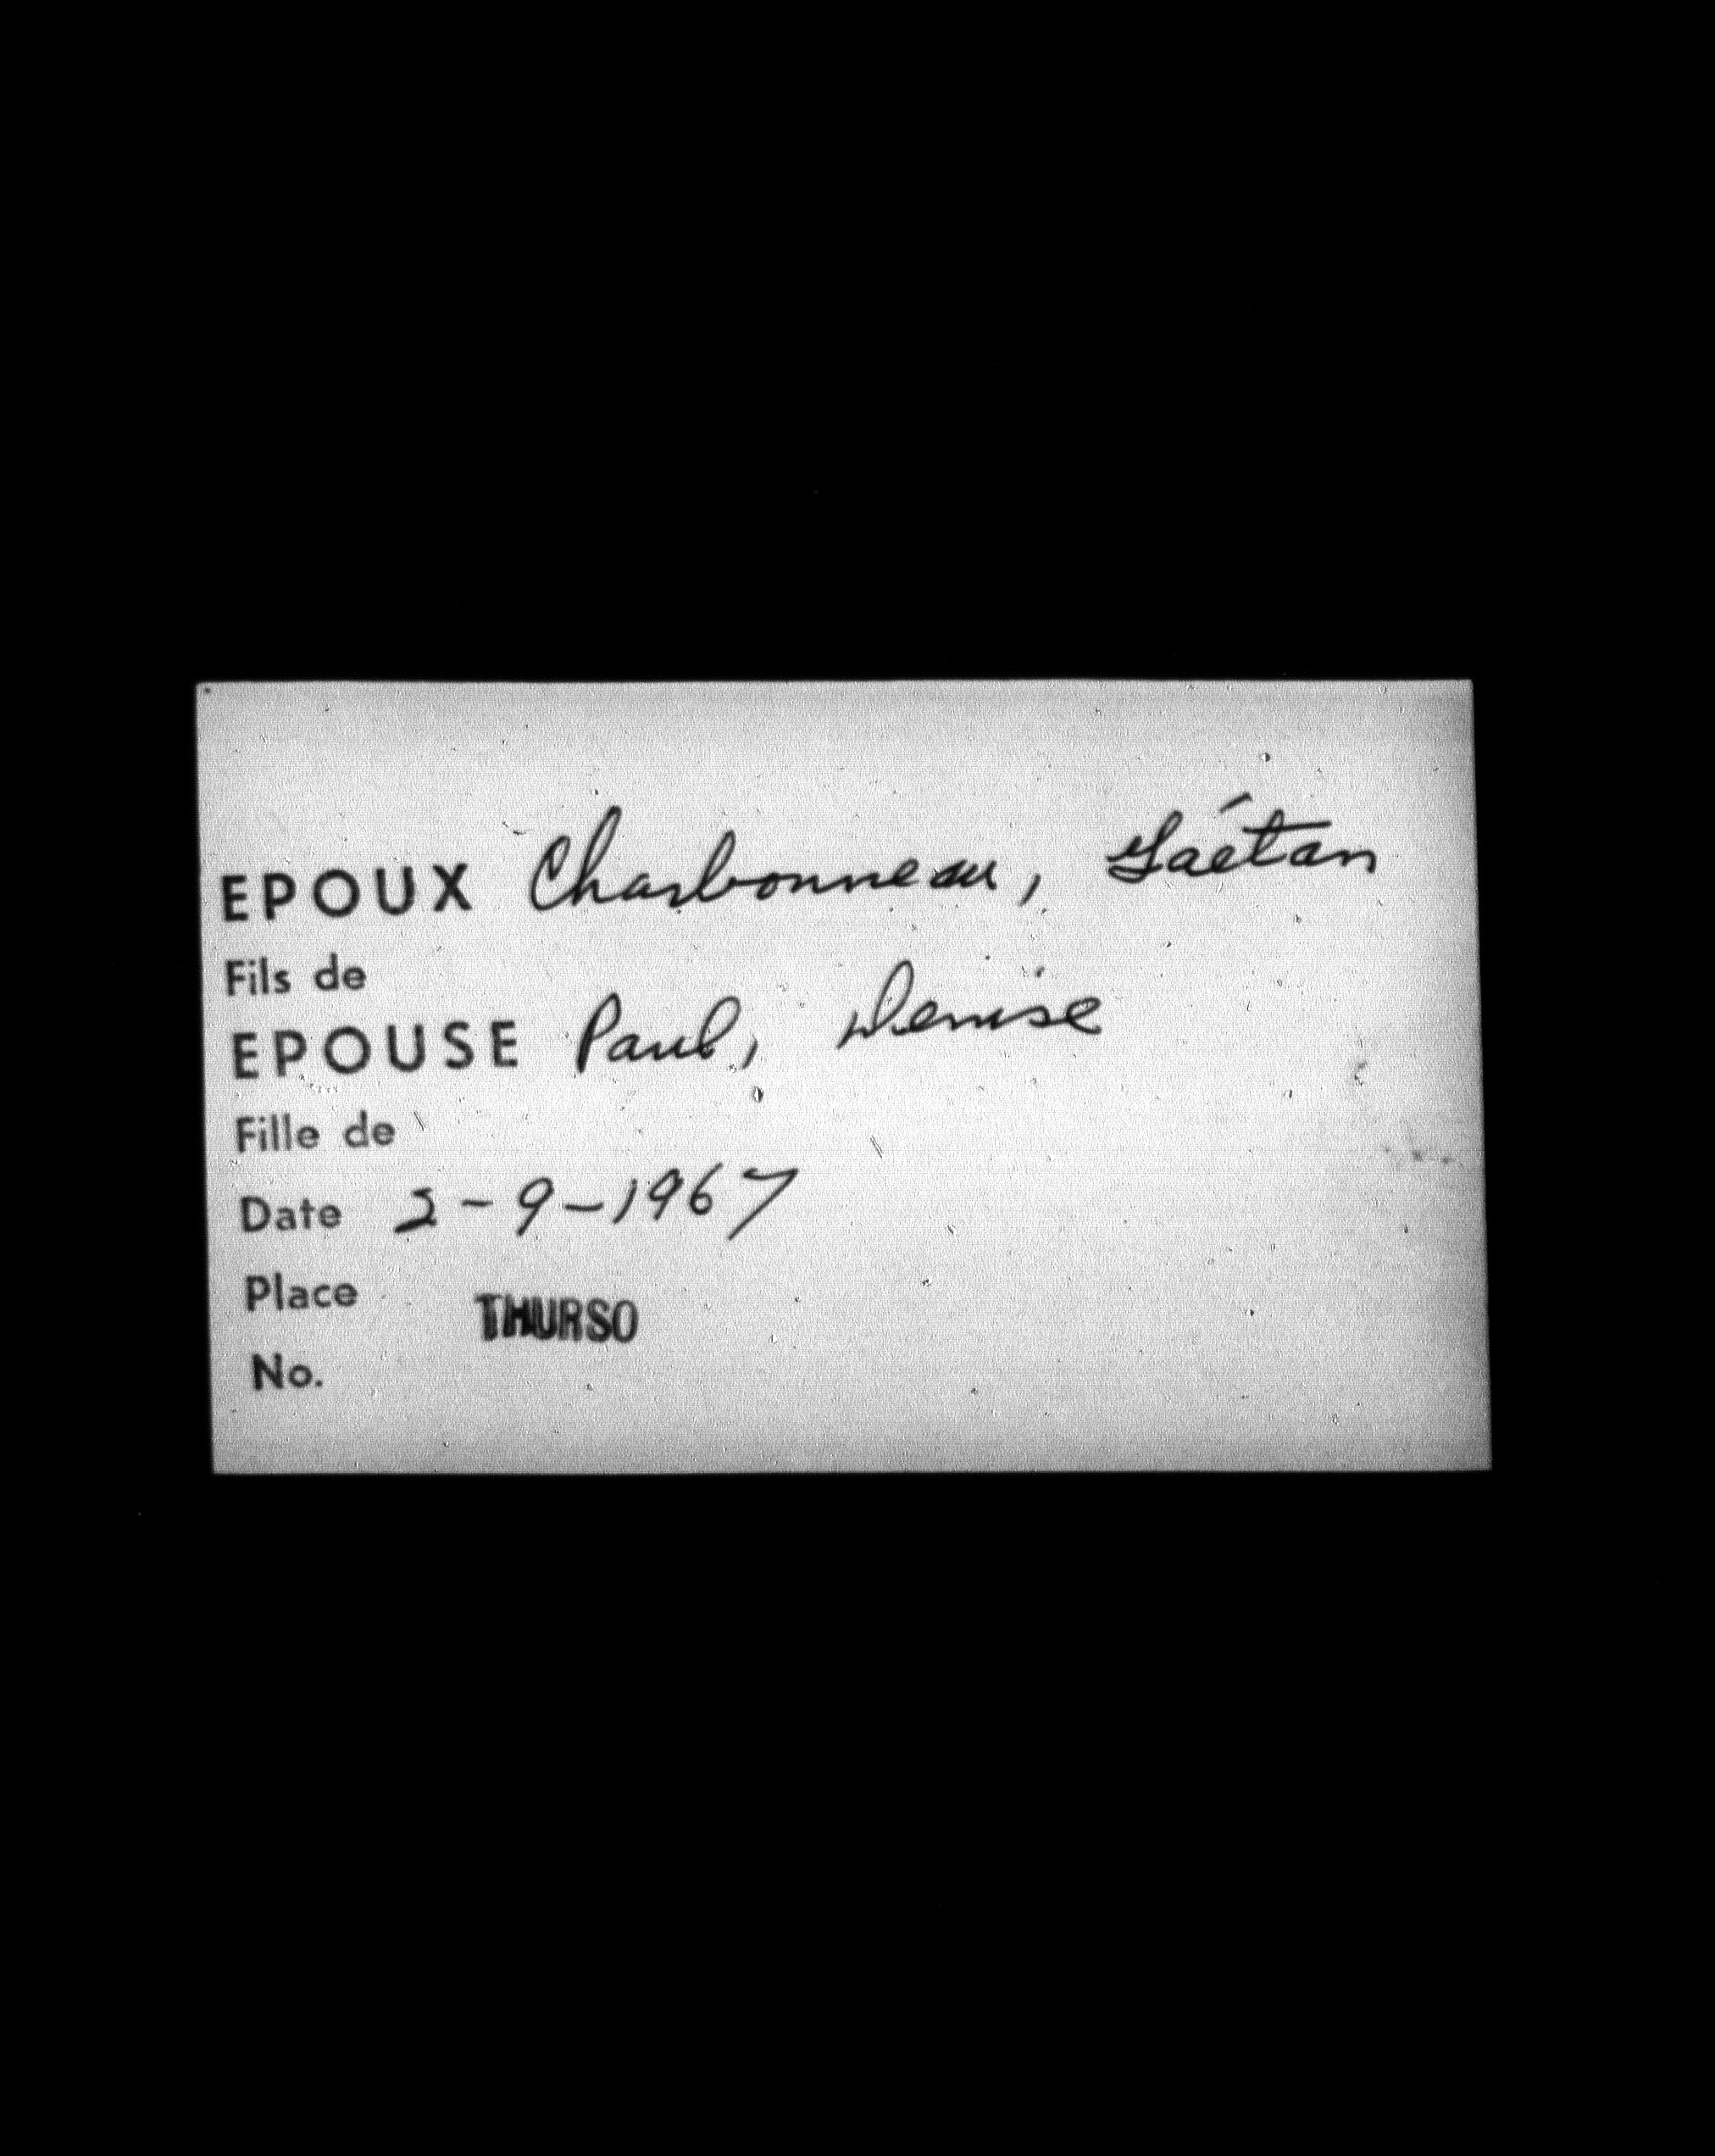 EPOUX Charbonneau, Gaétan
Fils de
EPOUSE Paul, Denise
Fille de
Date 2-9-1967
Place THURSO
No.